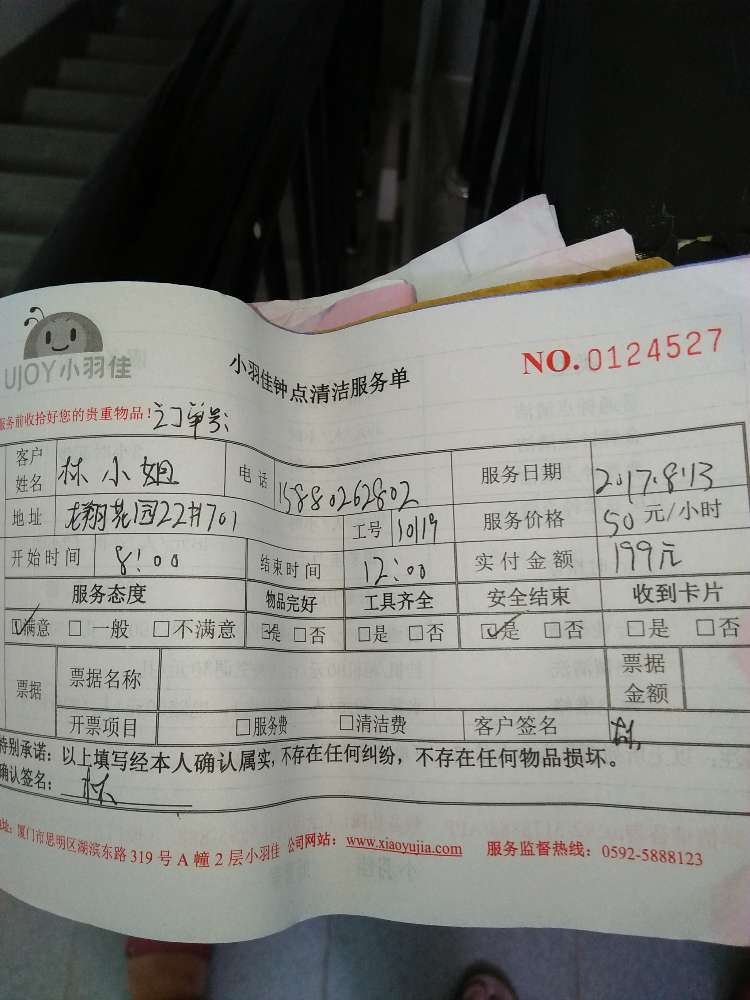 UJOY小羽佳
小羽佳钟点清洁服务单
NO.0124527
服务前收拾好您的贵重物品！订单号：
客户姓名 林小姐 电话 15880262802 服务日期 2017.8.13
地址 龙翔花园22#701 工号 10119 服务价格 50元/小时
开始时间 8:00 结束时间 12:00 实付金额 199元
服务态度 物品完好 工具齐全 安全结束 收到卡片
☑满意 □一般 □不满意 ☑是 □否 □是 □否 ☑是 □否 □是 □否
票据 票据名称 票据金额
开票项目 □服务费 □清洁费 客户签名 林
特别承诺：以上填写经本人确认属实，不存在任何纠纷，不存在任何物品损坏。
确认签名：林
地址：厦门市思明区湖滨东路319号A幢2层小羽佳 公司网站：www.xiaoyujia.com 服务监督热线：0592-5888123